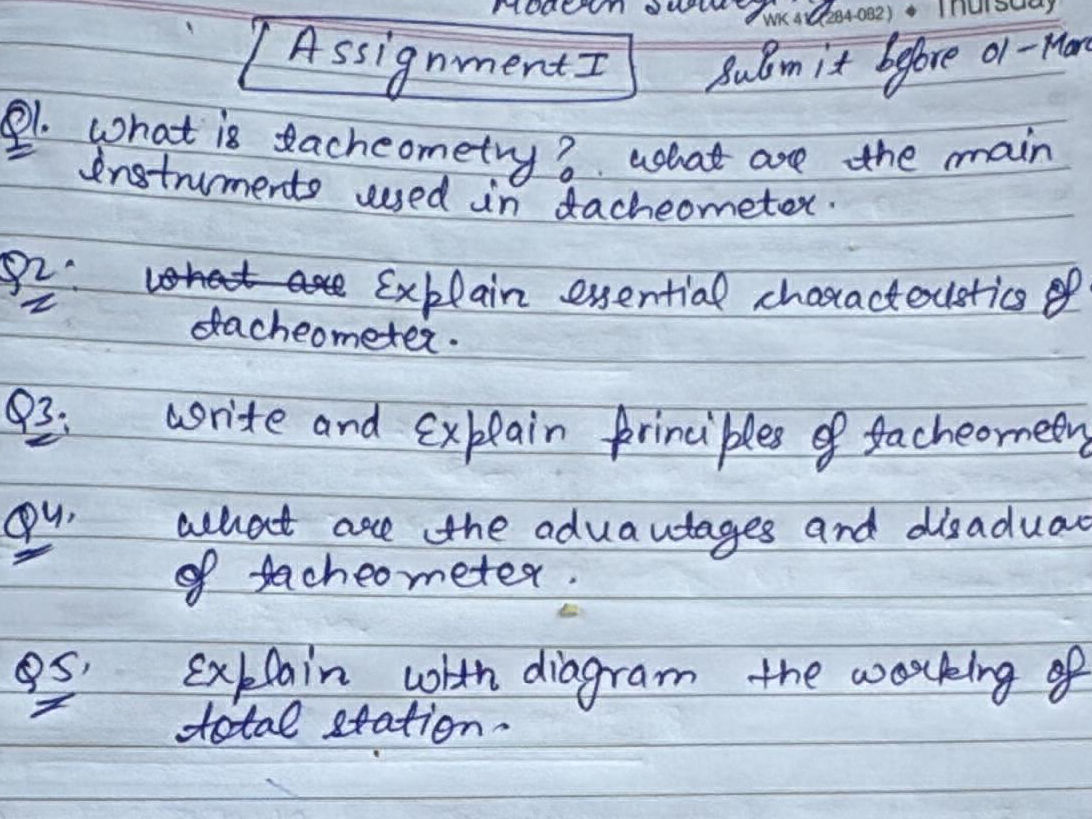 Modern Survey
WK 41 (284-082) • Thursday
Assignment I
Submit before 01-Mar
Q1. What is tacheometry? What are the main
instruments used in tacheometer.
Q2: What are Explain essential characteristics of
tacheometer.
Q3: Write and Explain principles of tacheometry
Q4. What are the advantages and disadvan
of tacheometer.
Q5. Explain with diagram the working of
total station.